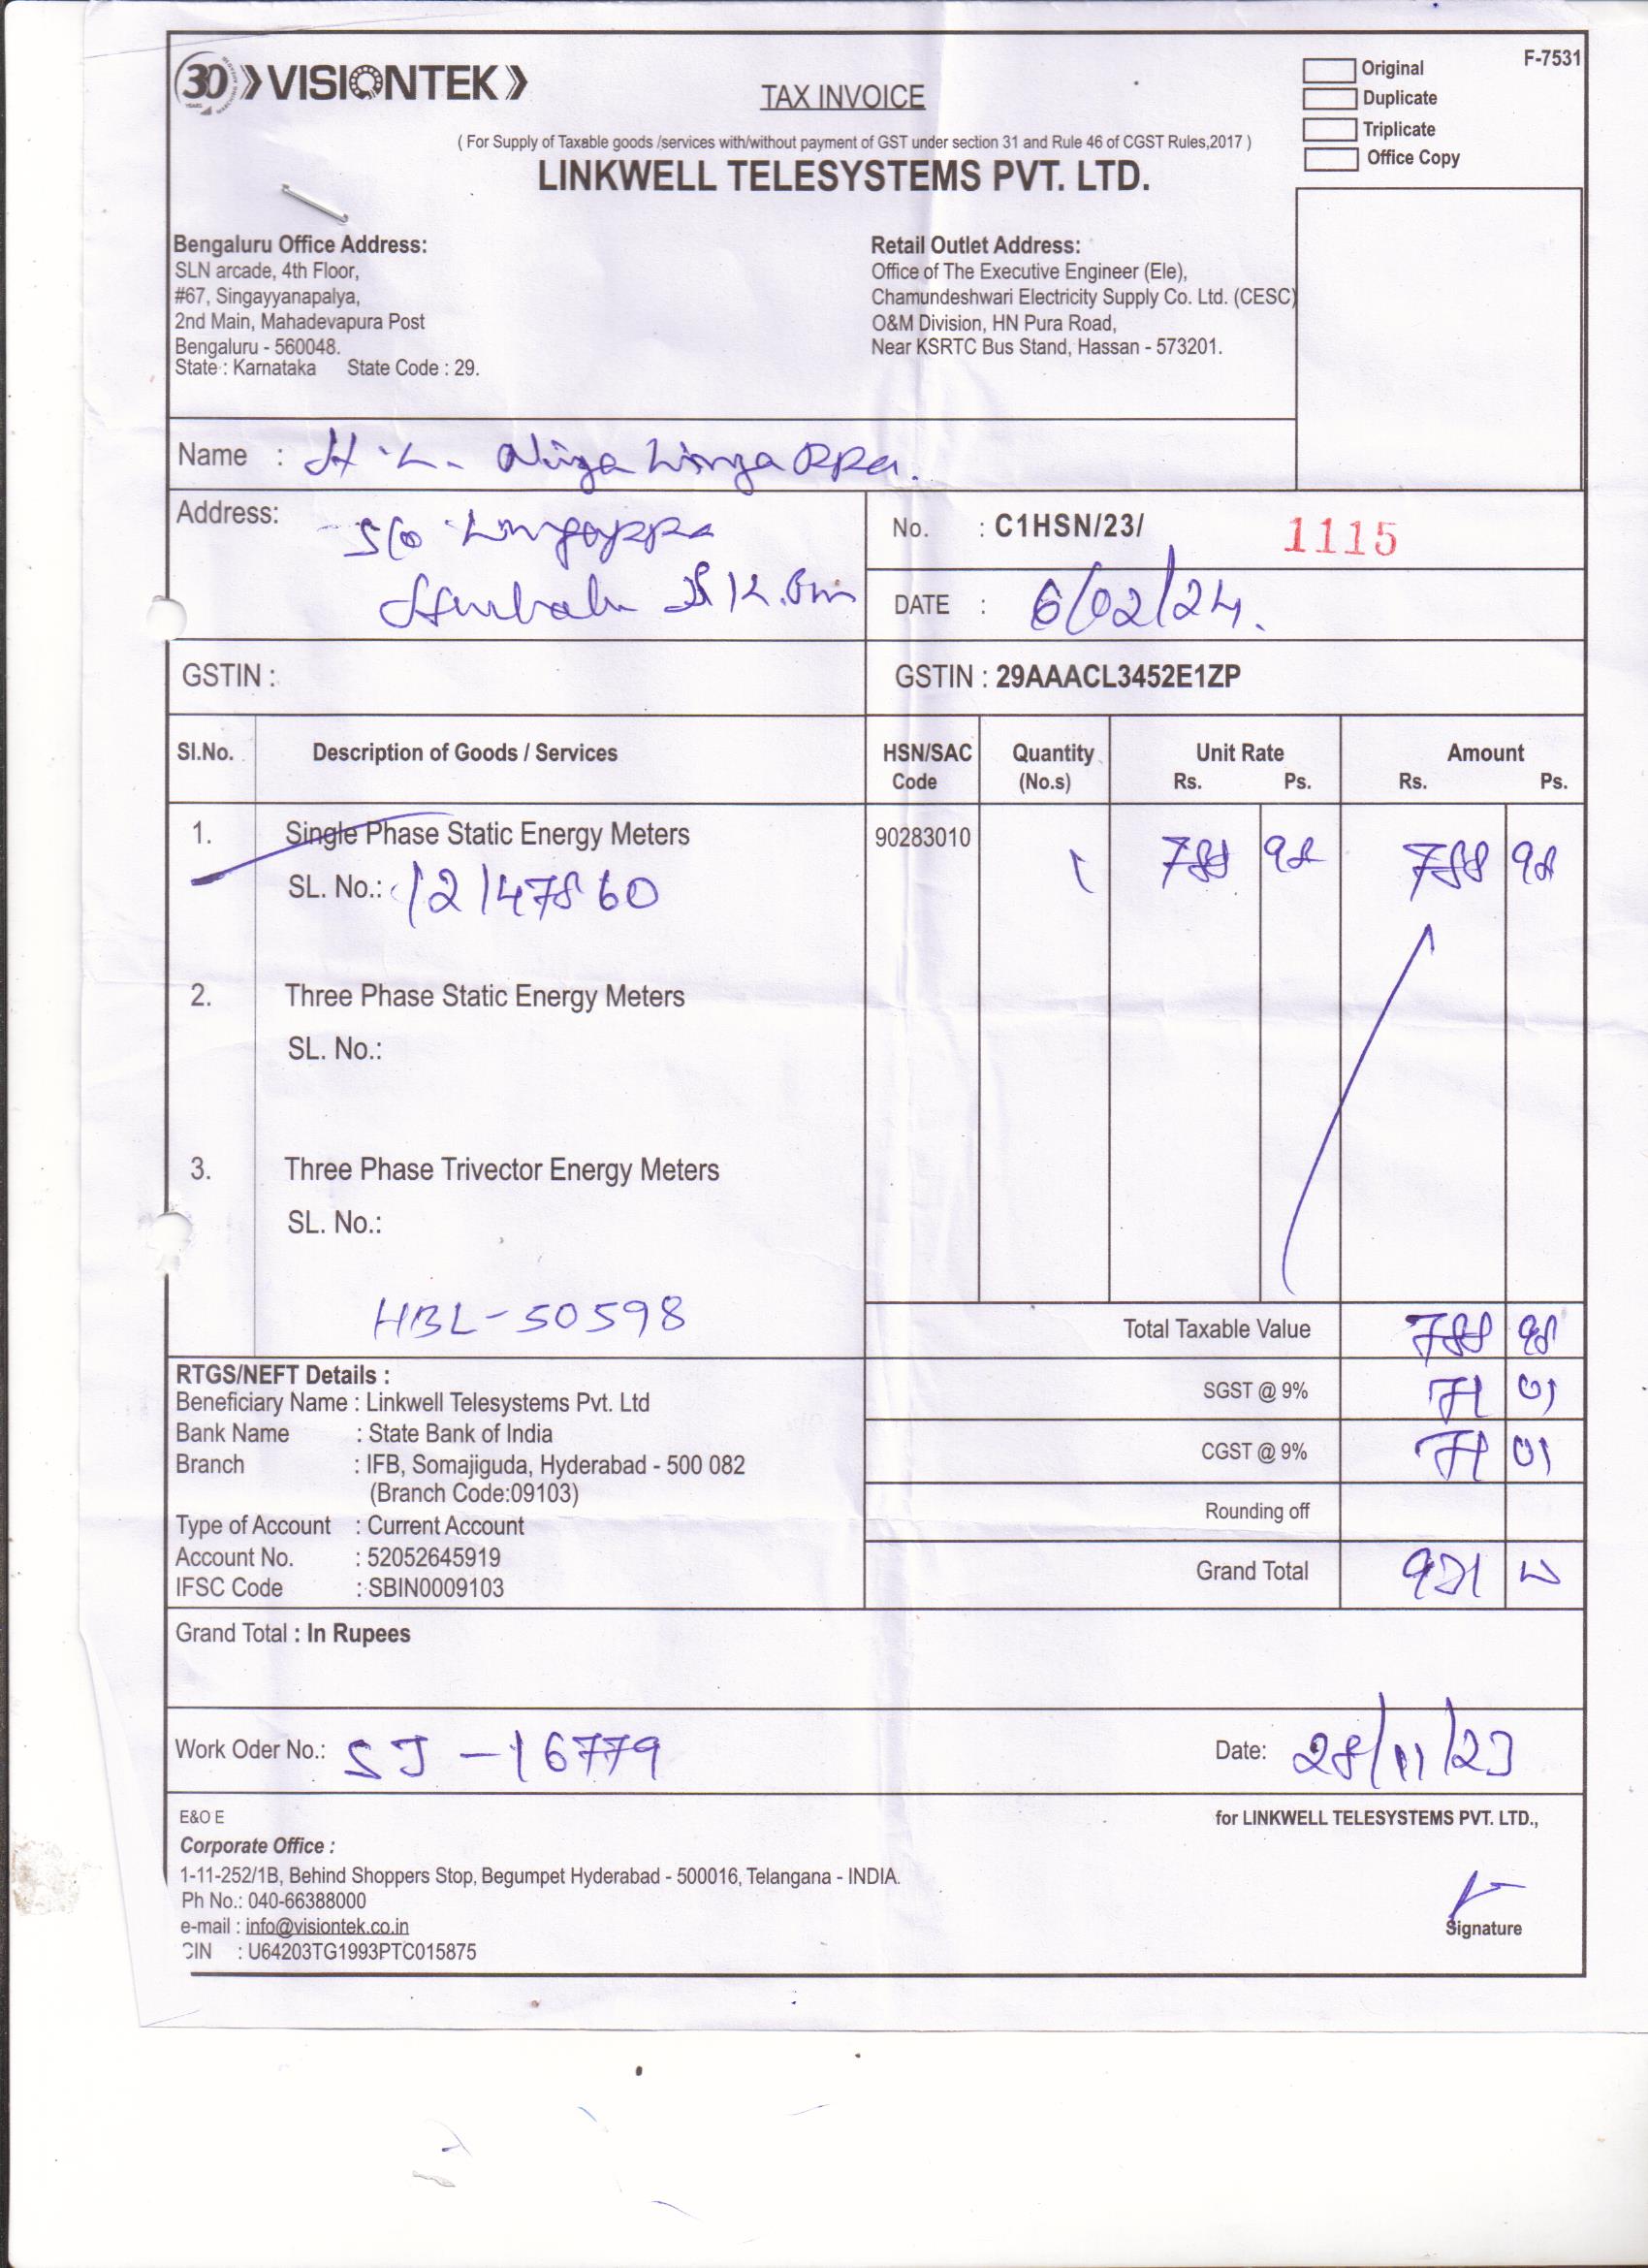 30 YEARS VISIONTEK
TAX INVOICE
F-7531
Original
Duplicate
Triplicate
Office Copy
( For Supply of Taxable goods /services with/without payment of GST under section 31 and Rule 46 of CGST Rules,2017 )
LINKWELL TELESYSTEMS PVT. LTD.
Bengaluru Office Address:
SLN arcade, 4th Floor,
#67, Singayyanapalya,
2nd Main, Mahadevapura Post
Bengaluru - 560048.
State : Karnataka State Code : 29.
Retail Outlet Address:
Office of The Executive Engineer (Ele),
Chamundeshwari Electricity Supply Co. Ltd. (CESC)
O&M Division, HN Pura Road,
Near KSRTC Bus Stand, Hassan - 573201.
Name : H.L.
Address: S/o Lingappa
No. : C1HSN/23/ 1115
DATE : 6/02/24.
GSTIN :
GSTIN : 29AAACL3452E1ZP
Sl.No. Description of Goods / Services HSN/SAC Code Quantity (No.s) Unit Rate Rs. Ps. Amount Rs. Ps.
1. Single Phase Static Energy Meters 90283010 1 788 98 788 98
SL. No.: 12147860
2. Three Phase Static Energy Meters
SL. No.:
3. Three Phase Trivector Energy Meters
SL. No.:
HBL-50598
Total Taxable Value 788 98
RTGS/NEFT Details :
Beneficiary Name : Linkwell Telesystems Pvt. Ltd
Bank Name : State Bank of India
Branch : IFB, Somajiguda, Hyderabad - 500 082
(Branch Code:09103)
Type of Account : Current Account
Account No. : 52052645919
IFSC Code : SBIN0009103
SGST @ 9% 71 01
CGST @ 9% 71 01
Rounding off
Grand Total 931
Grand Total : In Rupees
Work Oder No.: SJ-16779
Date: 28/11/23
E&O E
Corporate Office :
1-11-252/1B, Behind Shoppers Stop, Begumpet Hyderabad - 500016, Telangana - INDIA.
Ph No.: 040-66388000
e-mail : info@visiontek.co.in
CIN : U64203TG1993PTC015875
for LINKWELL TELESYSTEMS PVT. LTD.,
Signature